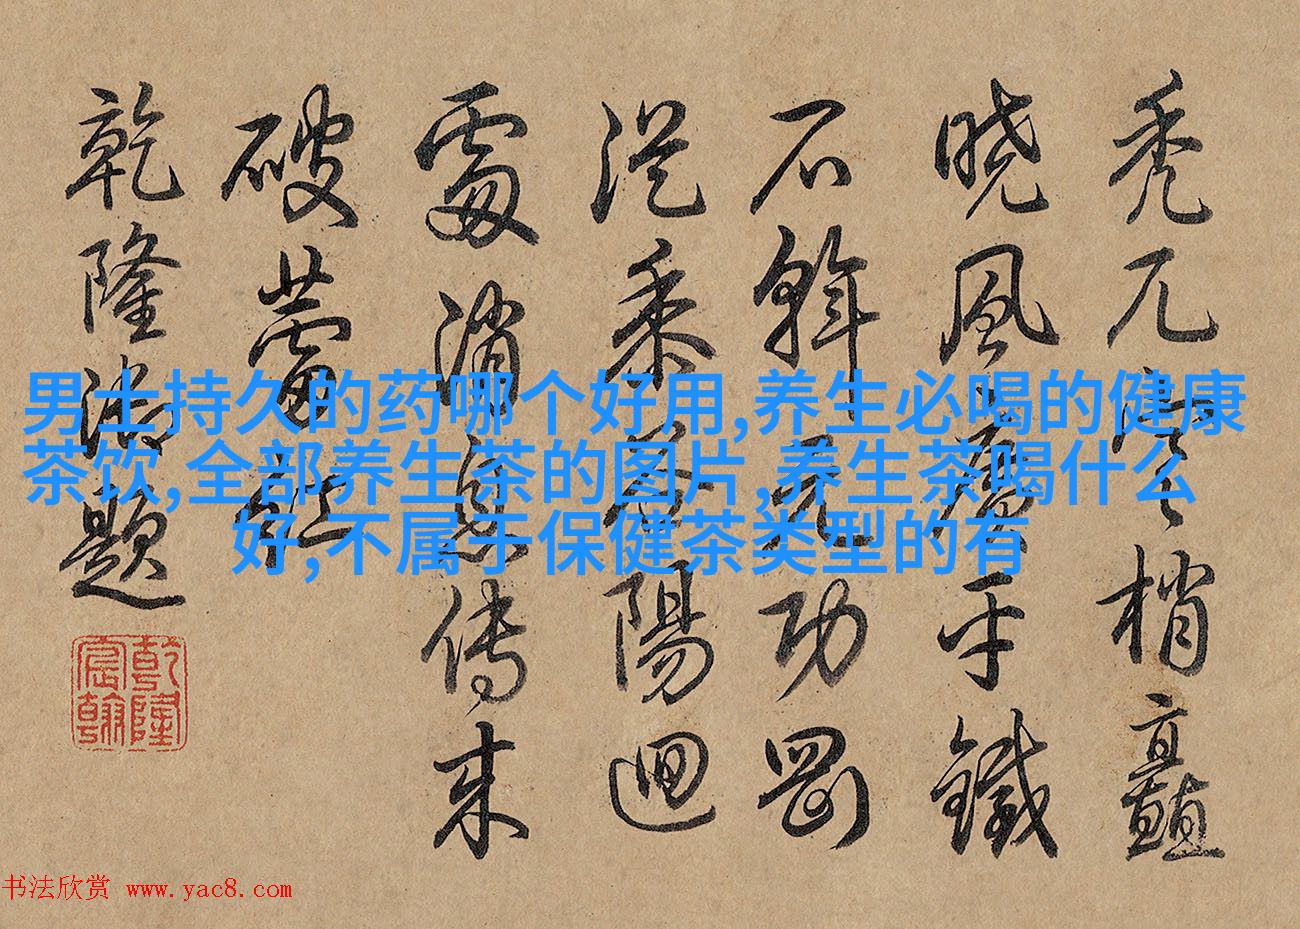 秃兀梢矗
晓風平鐵
石斡元功
從黍谷陽迴
消息傳来
破蕾
乾隆御題
乾隆宸翰
男士持久的药哪个好用,养生必喝的健康
茶饮,全部养生茶的图片,养生茶喝什么
好,不属于保健茶类型的有
书法欣赏 www.yac8.com